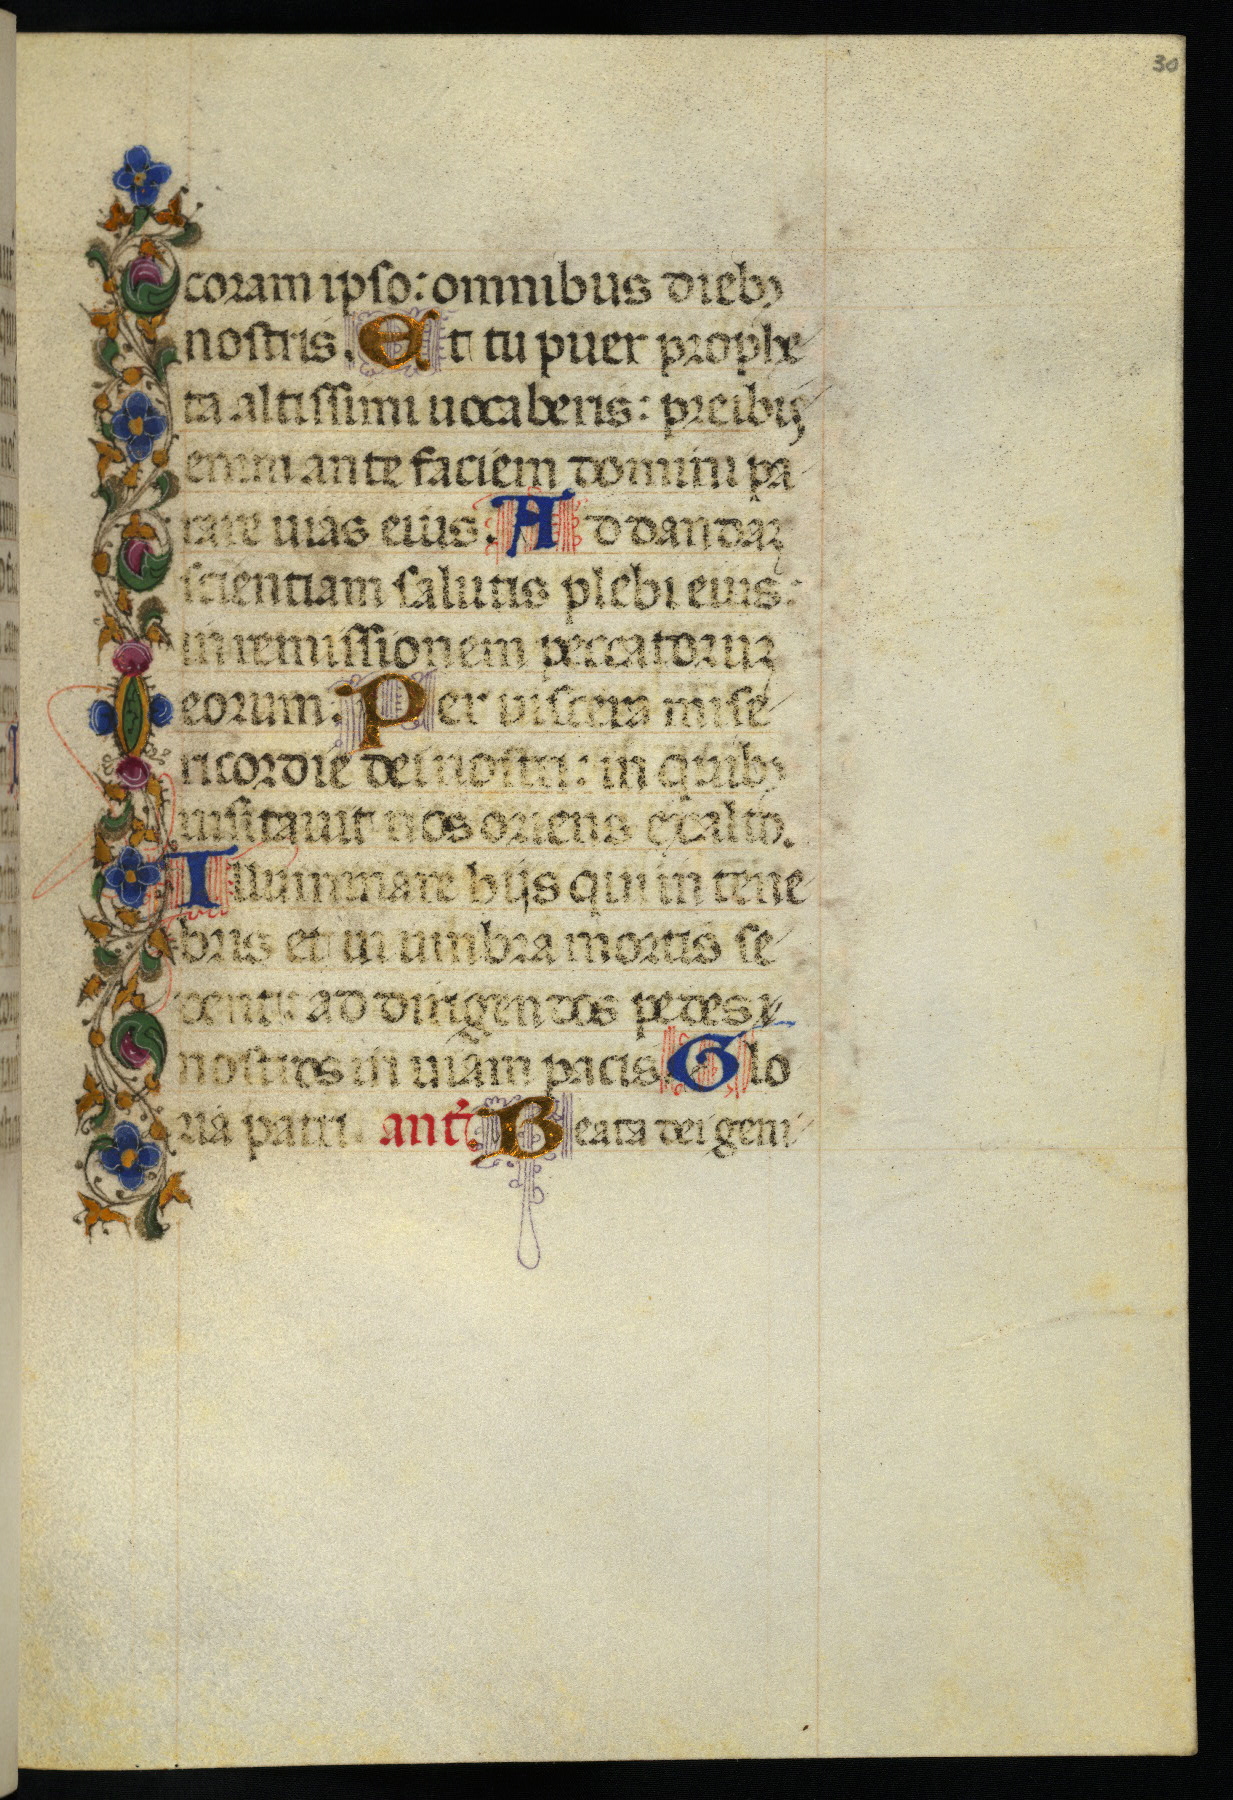 30
coram ipso: omnibus diebꝫ
nostris. Et tu puer prophe
ta altissimi uocaberis: preibis
enim ante faciem domini pa
rare uias eius. Ad dandaꝫ
scientiam salutis plebi eius:
in remissionem peccatoruꝫ
eorum. Per viscera mise
ricordie dei nostri: in quibꝫ
uisitauit nos oriens exalto.
Illuminare hijs qui in tene
bris et in umbra mortis se
dent: ad dirigendos pedes
nostros in uiam pacis. Glo
ria patri. ant. Beata dei geni